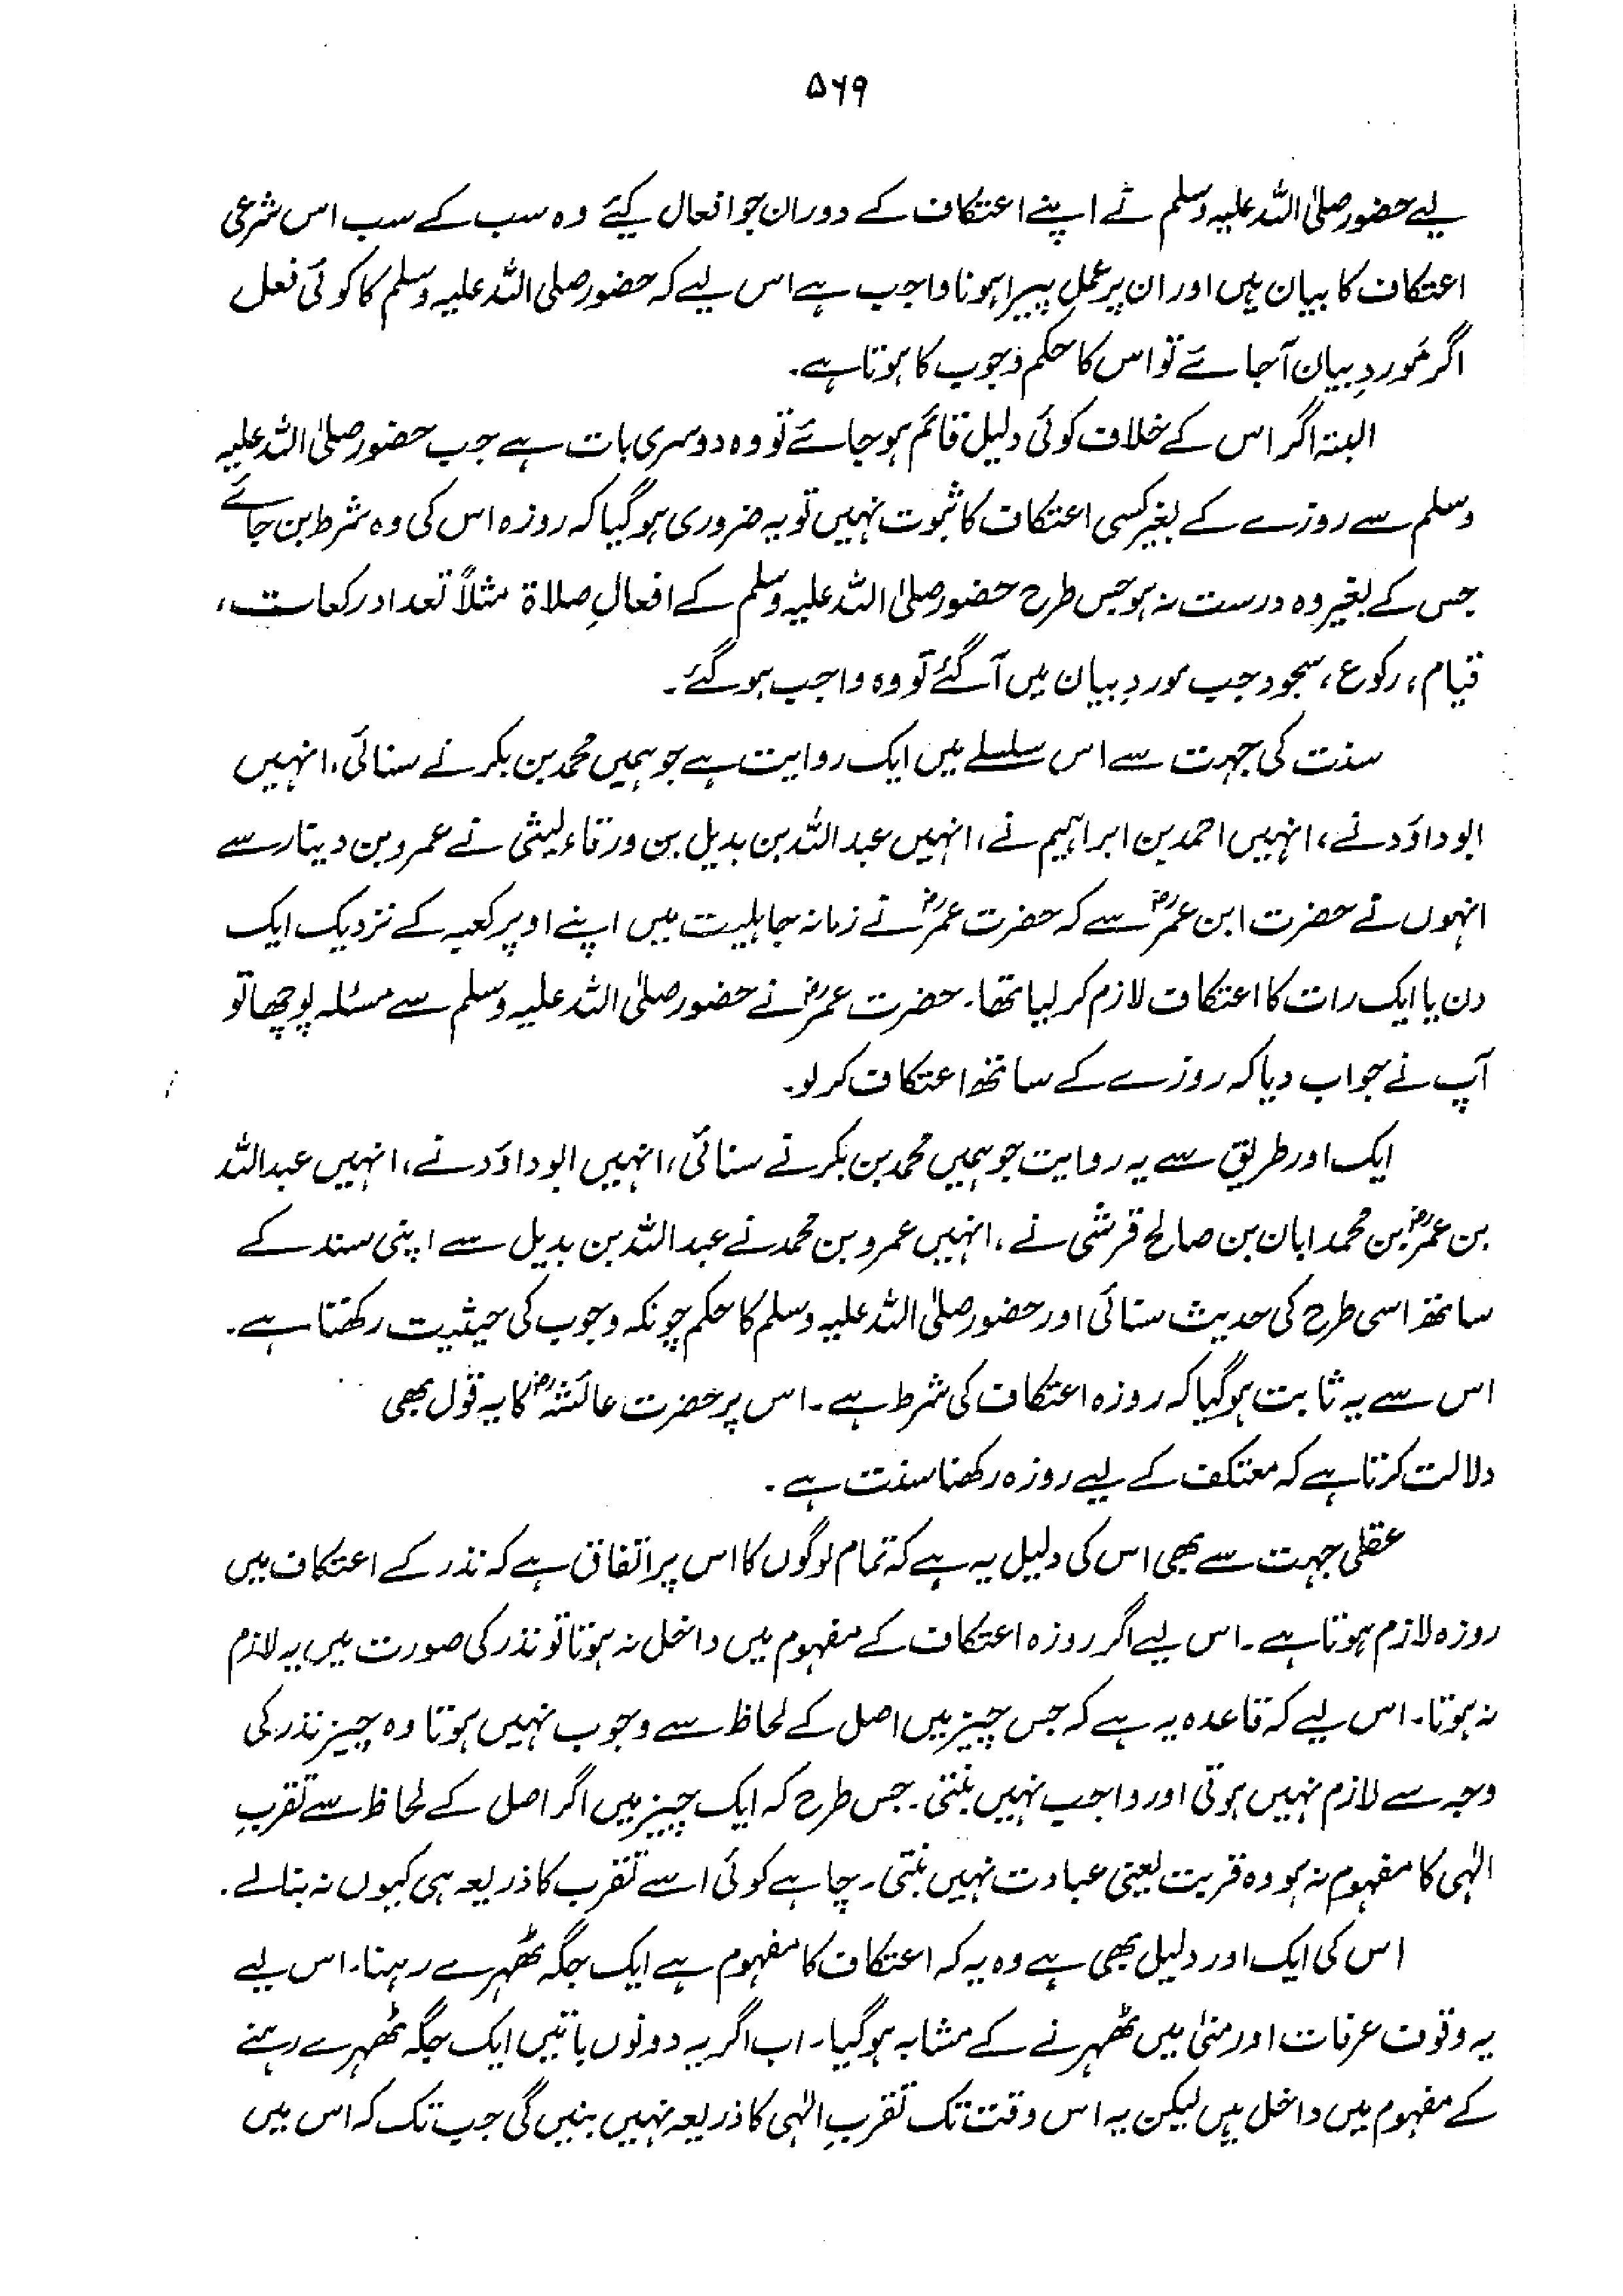 ۵۶۹
لیے حضور صلی اللہ علیہ وسلم نے اپنے اعتکاف کے دوران جو افعال کیئے وہ سب کے سب اس شرعی
اعتکاف کا بیان ہیں اور ان پر عمل پیرا ہونا واجب ہے اس لیے کہ حضور صلی اللہ علیہ وسلم کا کوئی فعل
اگر مَوردِ بیان آجائے تو اس کا حکم وجوب کا ہوتا ہے۔
البتہ اگر اس کے خلاف کوئی دلیل قائم ہو جائے تو وہ دوسری بات ہے جب حضور صلی اللہ علیہ
وسلم سے روزے کے بغیر کسی اعتکاف کا ثبوت نہیں تو یہ ضروری ہوگیا کہ روزہ اس کی وہ شرط بن جائے
جس کے بغیر وہ درست نہ ہو جس طرح حضور صلی اللہ علیہ وسلم کے افعالِ صلاۃ مثلاً تعداد رکعات،
قیام، رکوع، سجود جب موردِ بیان میں آگئے تو وہ واجب ہو گئے۔
سنت کی جہت سے اس سلسلے میں ایک روایت ہے جو ہمیں محمد بن بکر نے سنائی، انہیں
ابو داؤد نے، انہیں احمد بن ابراہیم نے، انہیں عبداللہ بن بدیل بن ورقاء لیثی نے عمرو بن دینار سے
انہوں نے حضرت ابن عمرؓ سے کہ حضرت عمرؓ نے زمانہ جاہلیت میں اپنے اوپر کعبہ کے نزدیک ایک
دن یا ایک رات کا اعتکاف لازم کر لیا تھا۔ حضرت عمرؓ نے حضور صلی اللہ علیہ وسلم سے مسئلہ پوچھا تو
آپ نے جواب دیا کہ روزے کے ساتھ اعتکاف کر لو۔
ایک اور طریق سے یہ روایت جو ہمیں محمد بن بکر نے سنائی، انہیں ابو داؤد نے، انہیں عبداللہ
بن عمرؓ بن محمد ابان بن صالح قرشی نے، انہیں عمرو بن محمد نے عبداللہ بن بدیل سے اپنی سند کے
ساتھ اسی طرح کی حدیث سنائی اور حضور صلی اللہ علیہ وسلم کا حکم چونکہ وجوب کی حیثیت رکھتا ہے۔
اس سے یہ ثابت ہوگیا کہ روزہ اعتکاف کی شرط ہے۔ اس پر حضرت عائشہؓ کا یہ قول بھی
دلالت کرتا ہے کہ معتکف کے لیے روزہ رکھنا سنت ہے۔
عقلی جہت سے بھی اس کی دلیل یہ ہے کہ تمام لوگوں کا اس پر اتفاق ہے کہ نذر کے اعتکاف میں
روزہ لازم ہوتا ہے۔ اس لیے اگر روزہ اعتکاف کے مفہوم میں داخل نہ ہوتا تو نذر کی صورت میں یہ لازم
نہ ہوتا۔ اس لیے کہ قاعدہ یہ ہے کہ جس چیز میں اصل کے لحاظ سے وجوب نہیں ہوتا وہ چیز نذر کی
وجہ سے لازم نہیں ہوتی اور واجب نہیں بنتی۔ جس طرح کہ ایک چیز میں اگر اصل کے لحاظ سے تقربِ
الٰہی کا مفہوم نہ ہو وہ قربت یعنی عبادت نہیں بنتی۔ چاہے کوئی اسے تقرب کا ذریعہ ہی کیوں نہ بنالے۔
اس کی ایک اور دلیل بھی ہے وہ یہ کہ اعتکاف کا مفہوم ہے ایک جگہ ٹھہرے رہنا۔ اس لیے
یہ وقوف عرفات اور منیٰ میں ٹھہرنے کے مشابہ ہوگیا۔ اب اگر یہ دونوں باتیں ایک جگہ ٹھہرے رہنے
کے مفہوم میں داخل ہیں لیکن یہ اس وقت تک تقربِ الٰہی کا ذریعہ نہیں بنیں گی جب تک کہ اس میں